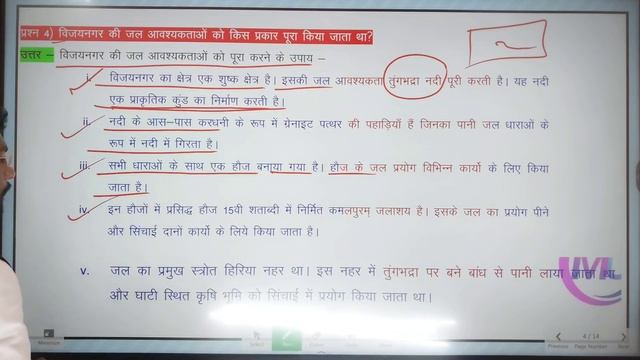 प्रश्न 4) विजयनगर की जल आवश्यकताओं को किस प्रकार पूरा किया जाता था?
उत्तर – विजयनगर की जल आवश्यकताओं को पूरा करने के उपाय –
i. विजयनगर का क्षेत्र एक शुष्क क्षेत्र है। इसकी जल आवश्यकता तुंगभद्रा नदी पूरी करती है। यह नदी
एक प्राकृतिक कुंड का निर्माण करती है।
ii. नदी के आस-पास करधनी के रूप में ग्रेनाइट पत्थर की पहाड़ियाँ हैं जिनका पानी जल धाराओं के
रूप में नदी में गिरता है।
iii. सभी धाराओं के साथ एक हौज बनाया गया है। हौज के जल प्रयोग विभिन्न कार्यो के लिए किया
जाता है।
iv. इन हौजों में प्रसिद्ध हौज 15वी शताब्दी में निर्मित कमलपुरम् जलाशय है। इसके जल का प्रयोग पीने
और सिंचाई दानों कार्यो के लिये किया जाता है।
v. जल का प्रमुख स्त्रोत हिरिया नहर था। इस नहर में तुंगभद्रा पर बने बांध से पानी लाया जाता था
और घाटी स्थित कृषि भूमि को सिंचाई में प्रयोग किया जाता था।
4 / 14
Previous Page Number Next